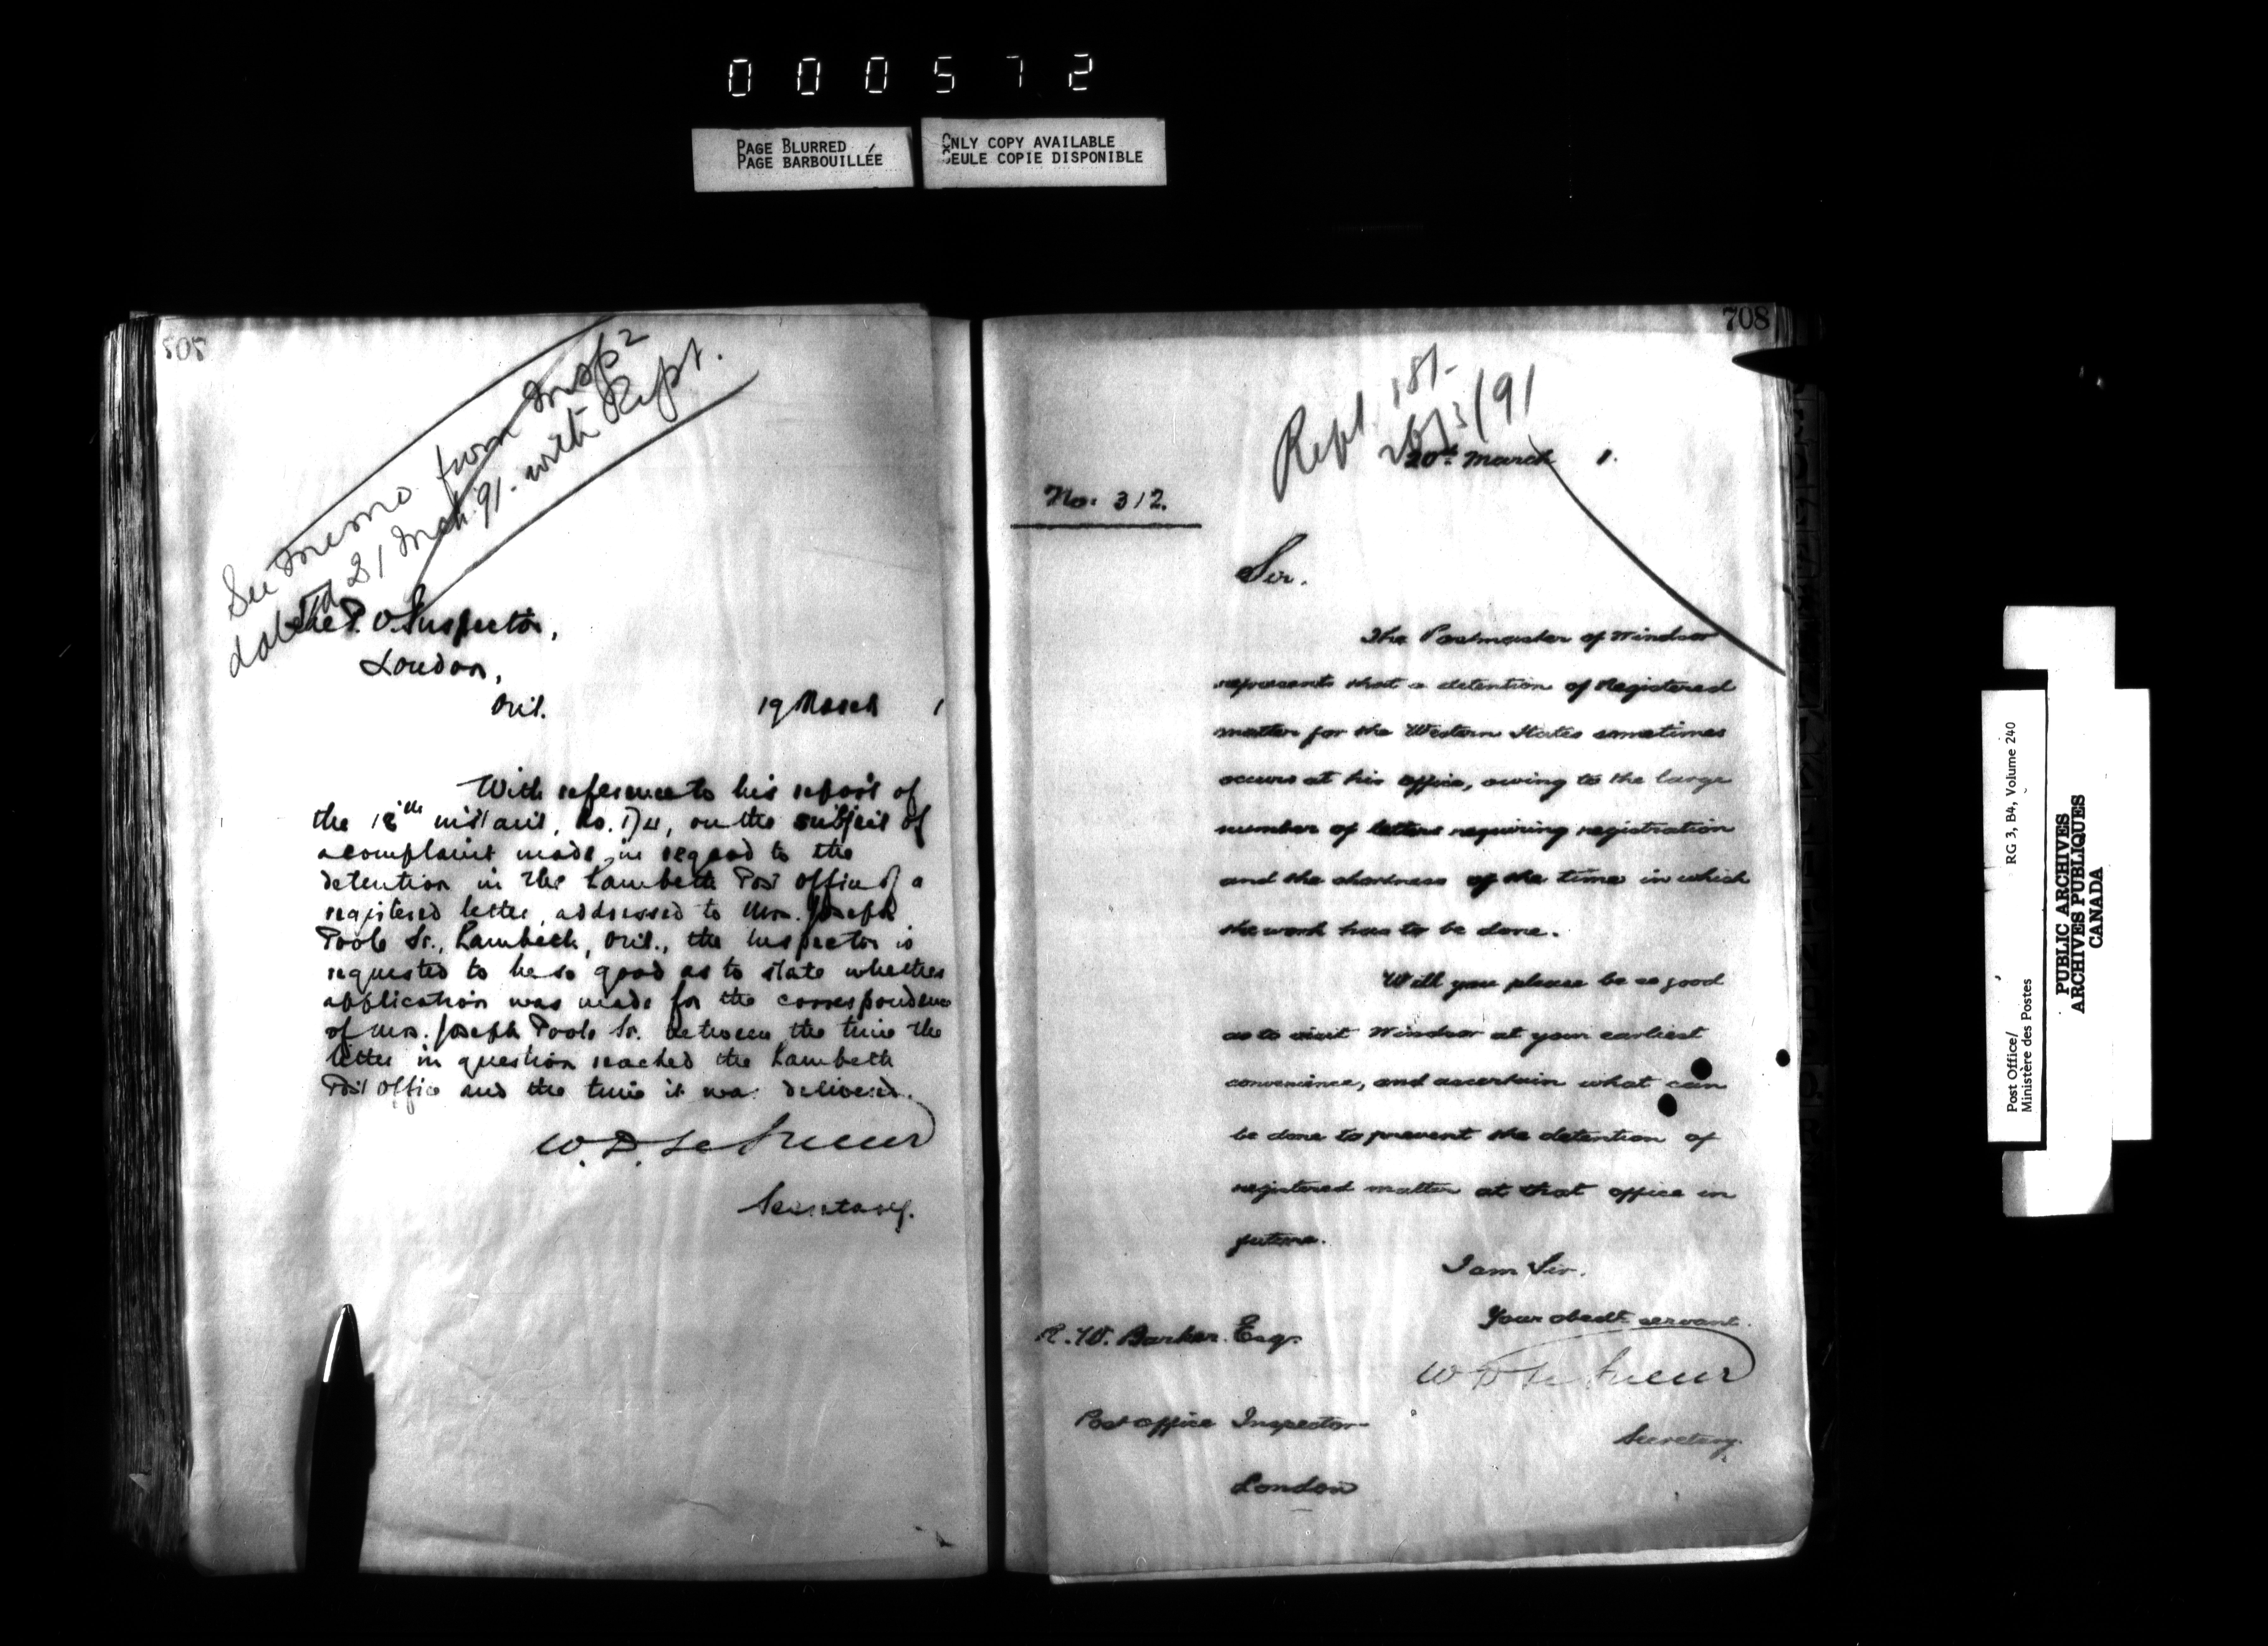 000572
PAGE BLURRED
PAGE BARBOUILLÉE
ONLY COPY AVAILABLE
SEULE COPIE DISPONIBLE
See memo from Insp
dated 21 Mch. 91. with Rept.
The P. O. Inspector,
London,
Ont.
19 March 1
With reference to his report of
the 18th instant, No. on the subject of
a complaint made in regard to the
detention in the Lambeth Post Office of a
registered letter, addressed to Mrs. Joseph
Poole Sr., Lambeth, Ont., the Inspector is
requested to be so good as to state whether
application was made for the correspondence
of Mrs. Joseph Poole Sr. between the time the
letter in question reached the Lambeth
Post Office and the time it was delivered.
W. D. LeSueur
Secretary.
708
Rept. 181
26/3/91
20th March 1.
No: 312.
Sir.
The Postmaster of Windsor
represents that a detention of Registered
matter for the Western States sometimes
occurs at his office, owing to the large
number of letters requiring registration
and the shortness of the time in which
the work has to be done.
Will you please be so good
as to visit Windsor at your earliest
convenience, and ascertain what can
be done to prevent the detention of
registered matter at that office in
future.
I am Sir.
Your obedt servant.
W D LeSueur
Secretary.
R. W. Barker. Esq.
Post Office Inspector
London
Post Office/
Ministère des Postes
RG 3, B4, Volume 240
PUBLIC ARCHIVES
ARCHIVES PUBLIQUES
CANADA